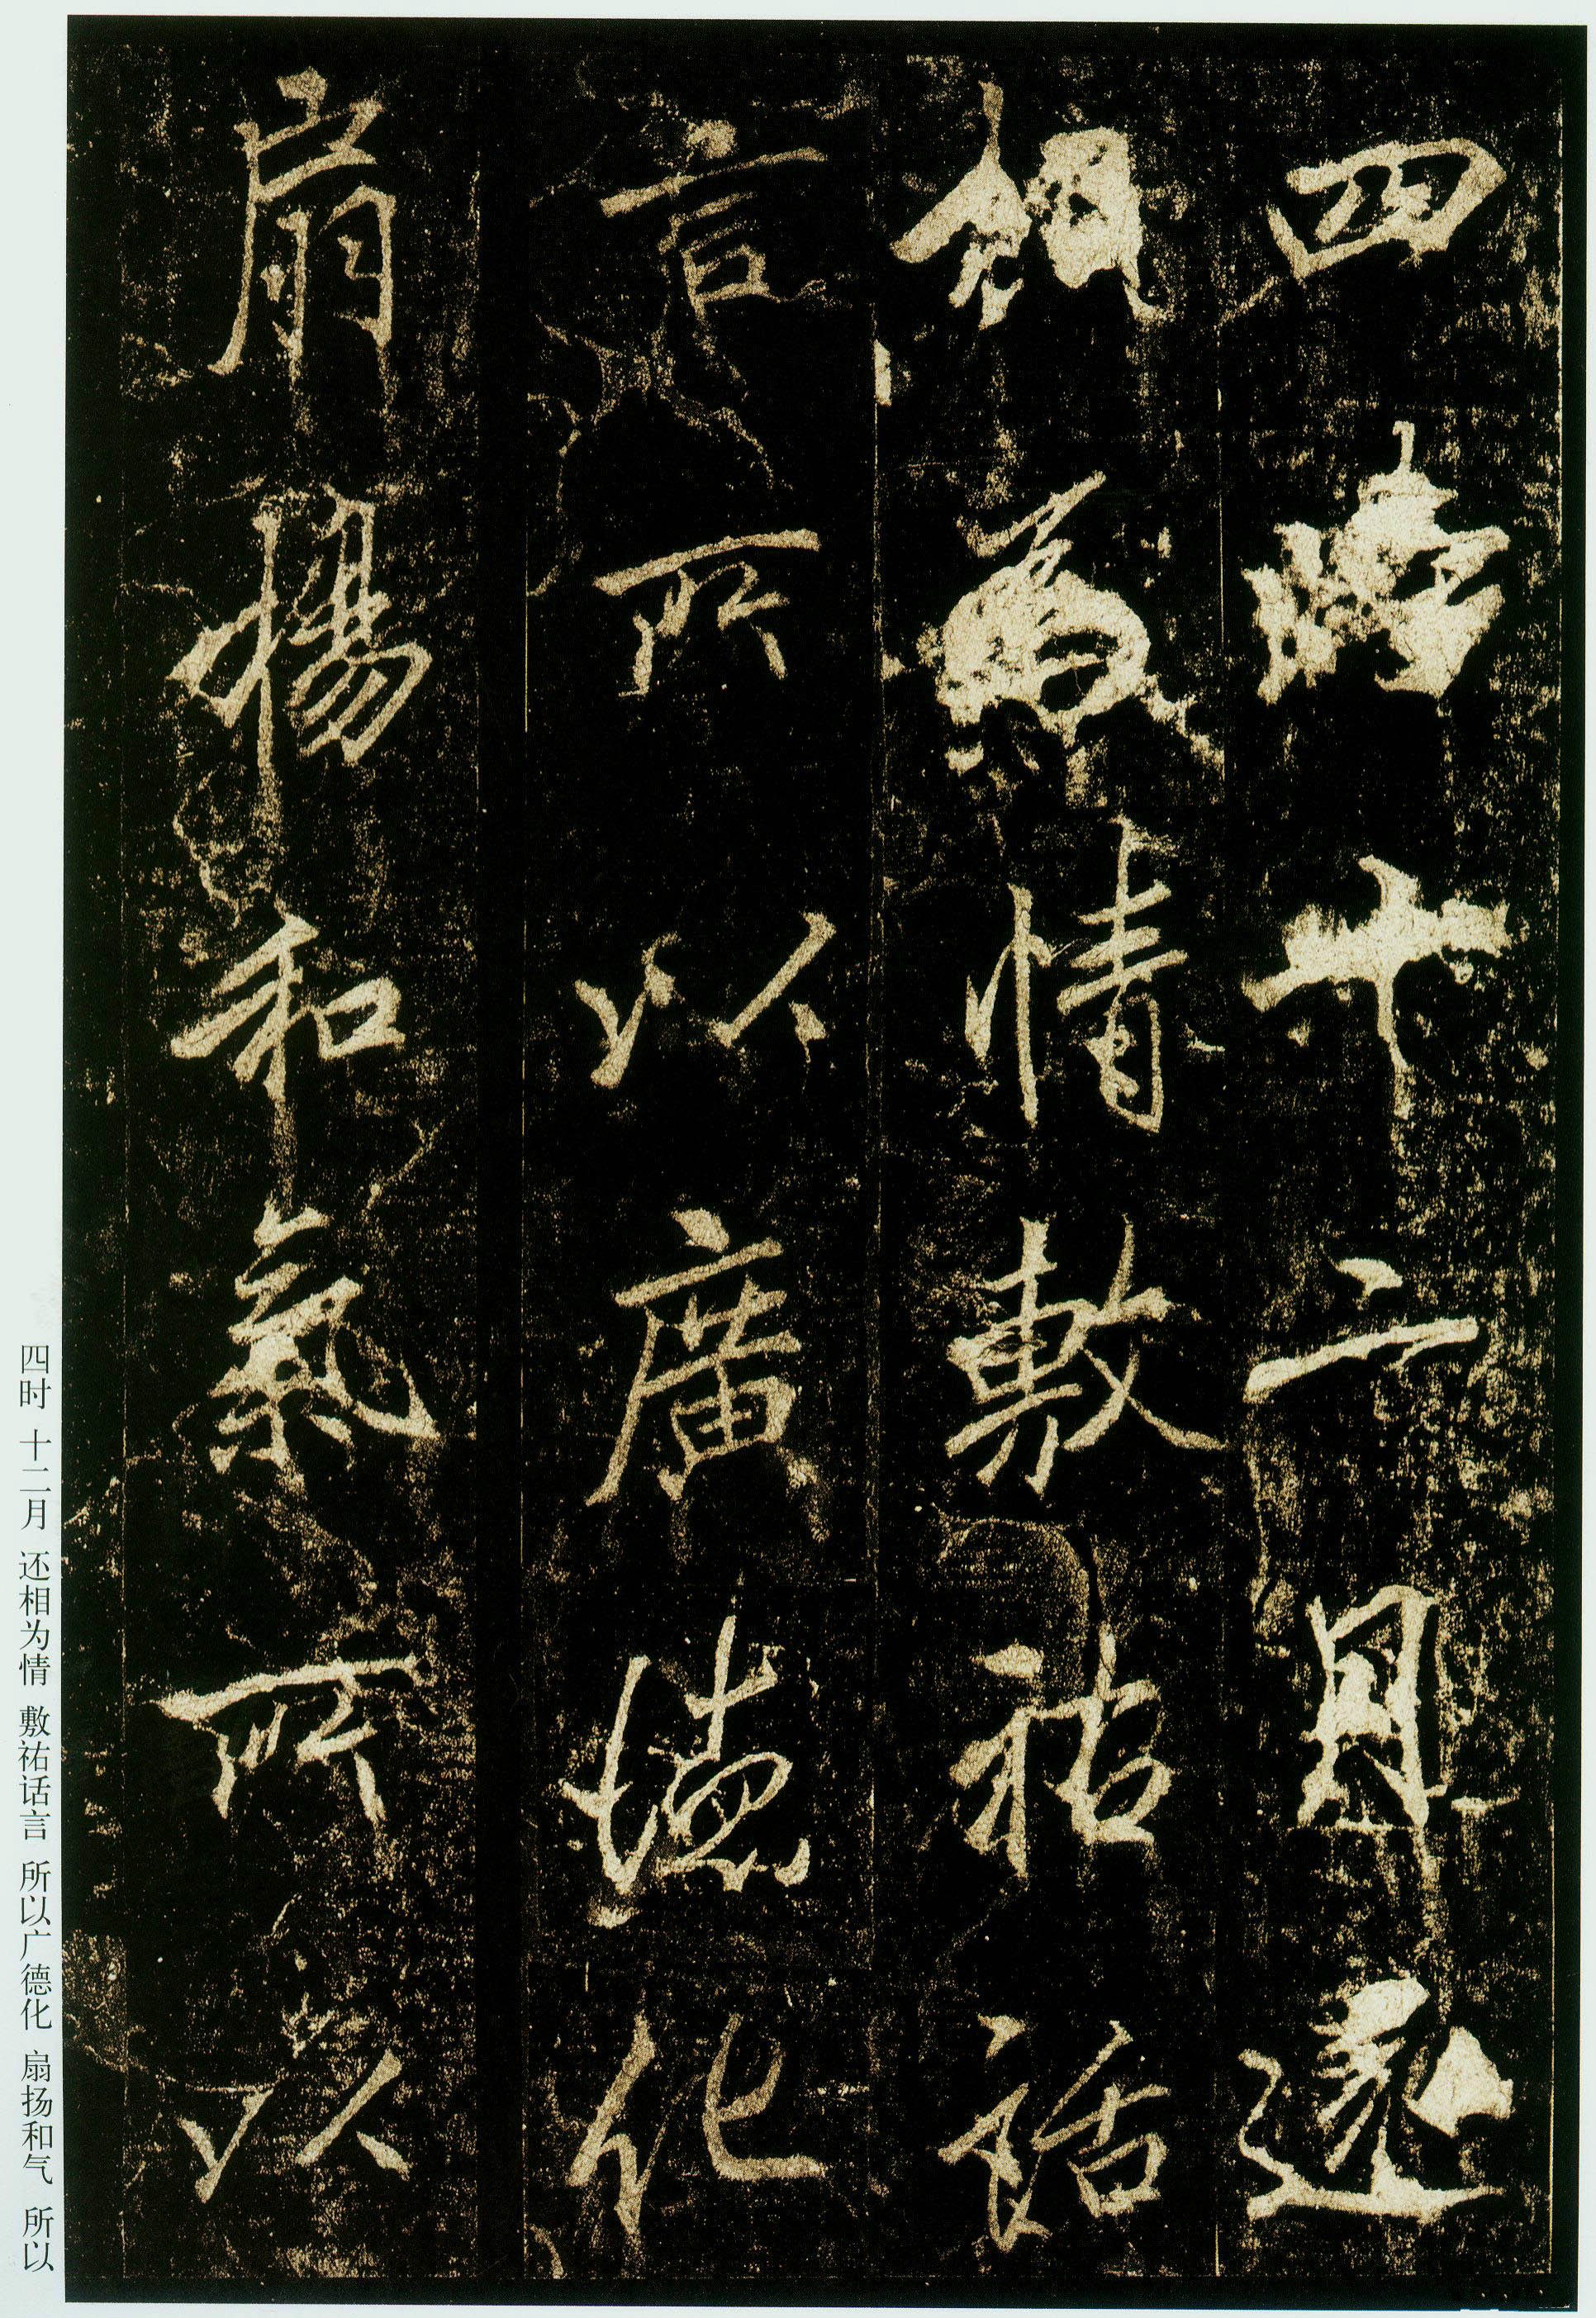 四時十二月還
相為情敷祐話
言所以廣德化
扇揚和氣所以
四时 十二月 还相为情 敷祐话言 所以广德化 扇扬和气 所以